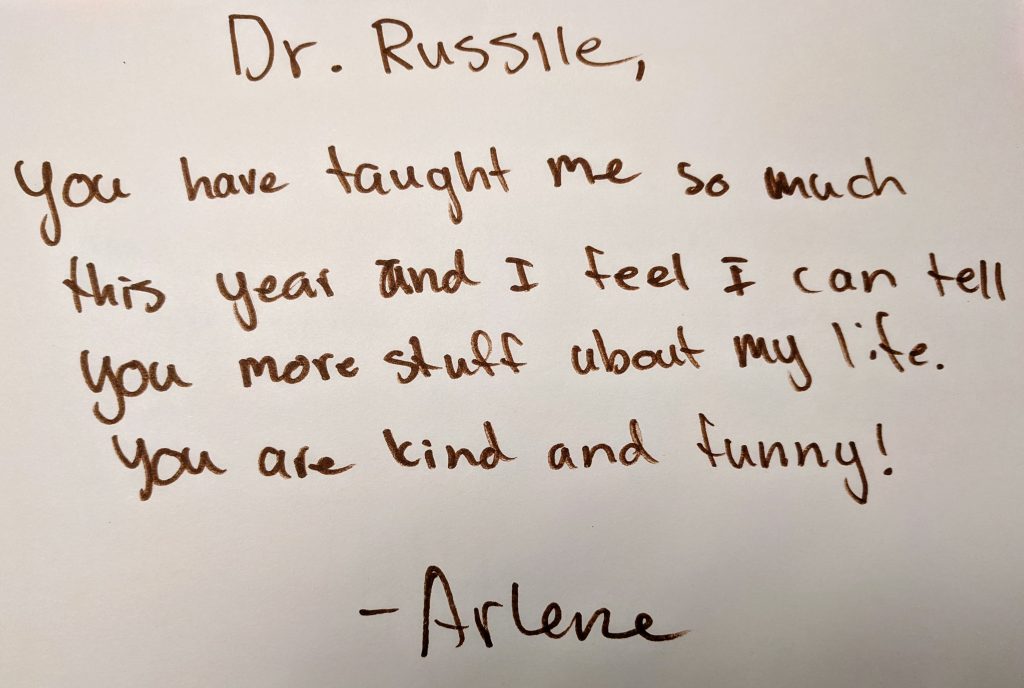 Dr. Russile,
You have taught me so much
this year and I feel I can tell
you more stuff about my life.
You are kind and funny!
-Arlene